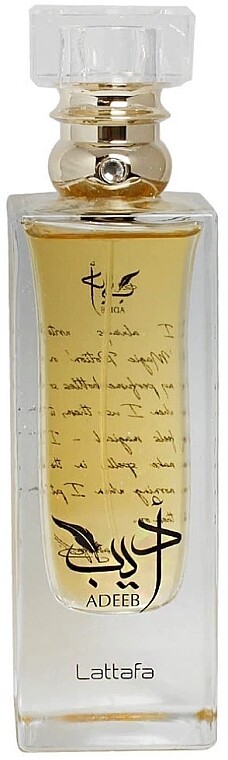 أديب
I always write
Magic Potion' on
my perfume bottles so
when I use them, it
feels magical - I
spell in the
morning when I put
أديب
ADEEB
Lattafa